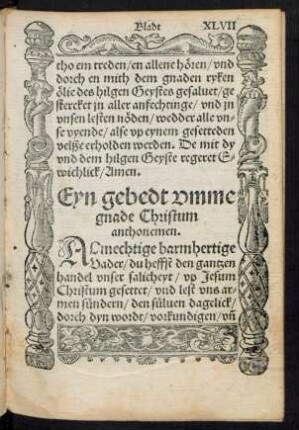 Bladt XLVII
tho em treden/ en allene hören/ vnd
dorch en mith dem gnaden ryken
ölie des hilgen Geystes gesaluet/ ge
stercket jn aller anfechtinge/ vnd jn
vnsen lesten nöden/ wedder alle vn-
se vyende/ alse vp eynem gesetteden
velße erholden werden. De mit dy
vnd dem hilgen Geyste regeret E-
wichlick/ Amen.
Eyn gebedt vmme
gnade Christum
anthonemen.
ALmechtige barmhertige
Vader/ du heffst den gantzen
handel vnser salicheyt/ vp Jesum
Christum gesettet/ vnd lest vns ar-
men sündern/ den süluen dagelick/
dorch dyn wordt/ vorkundigen/ vñ